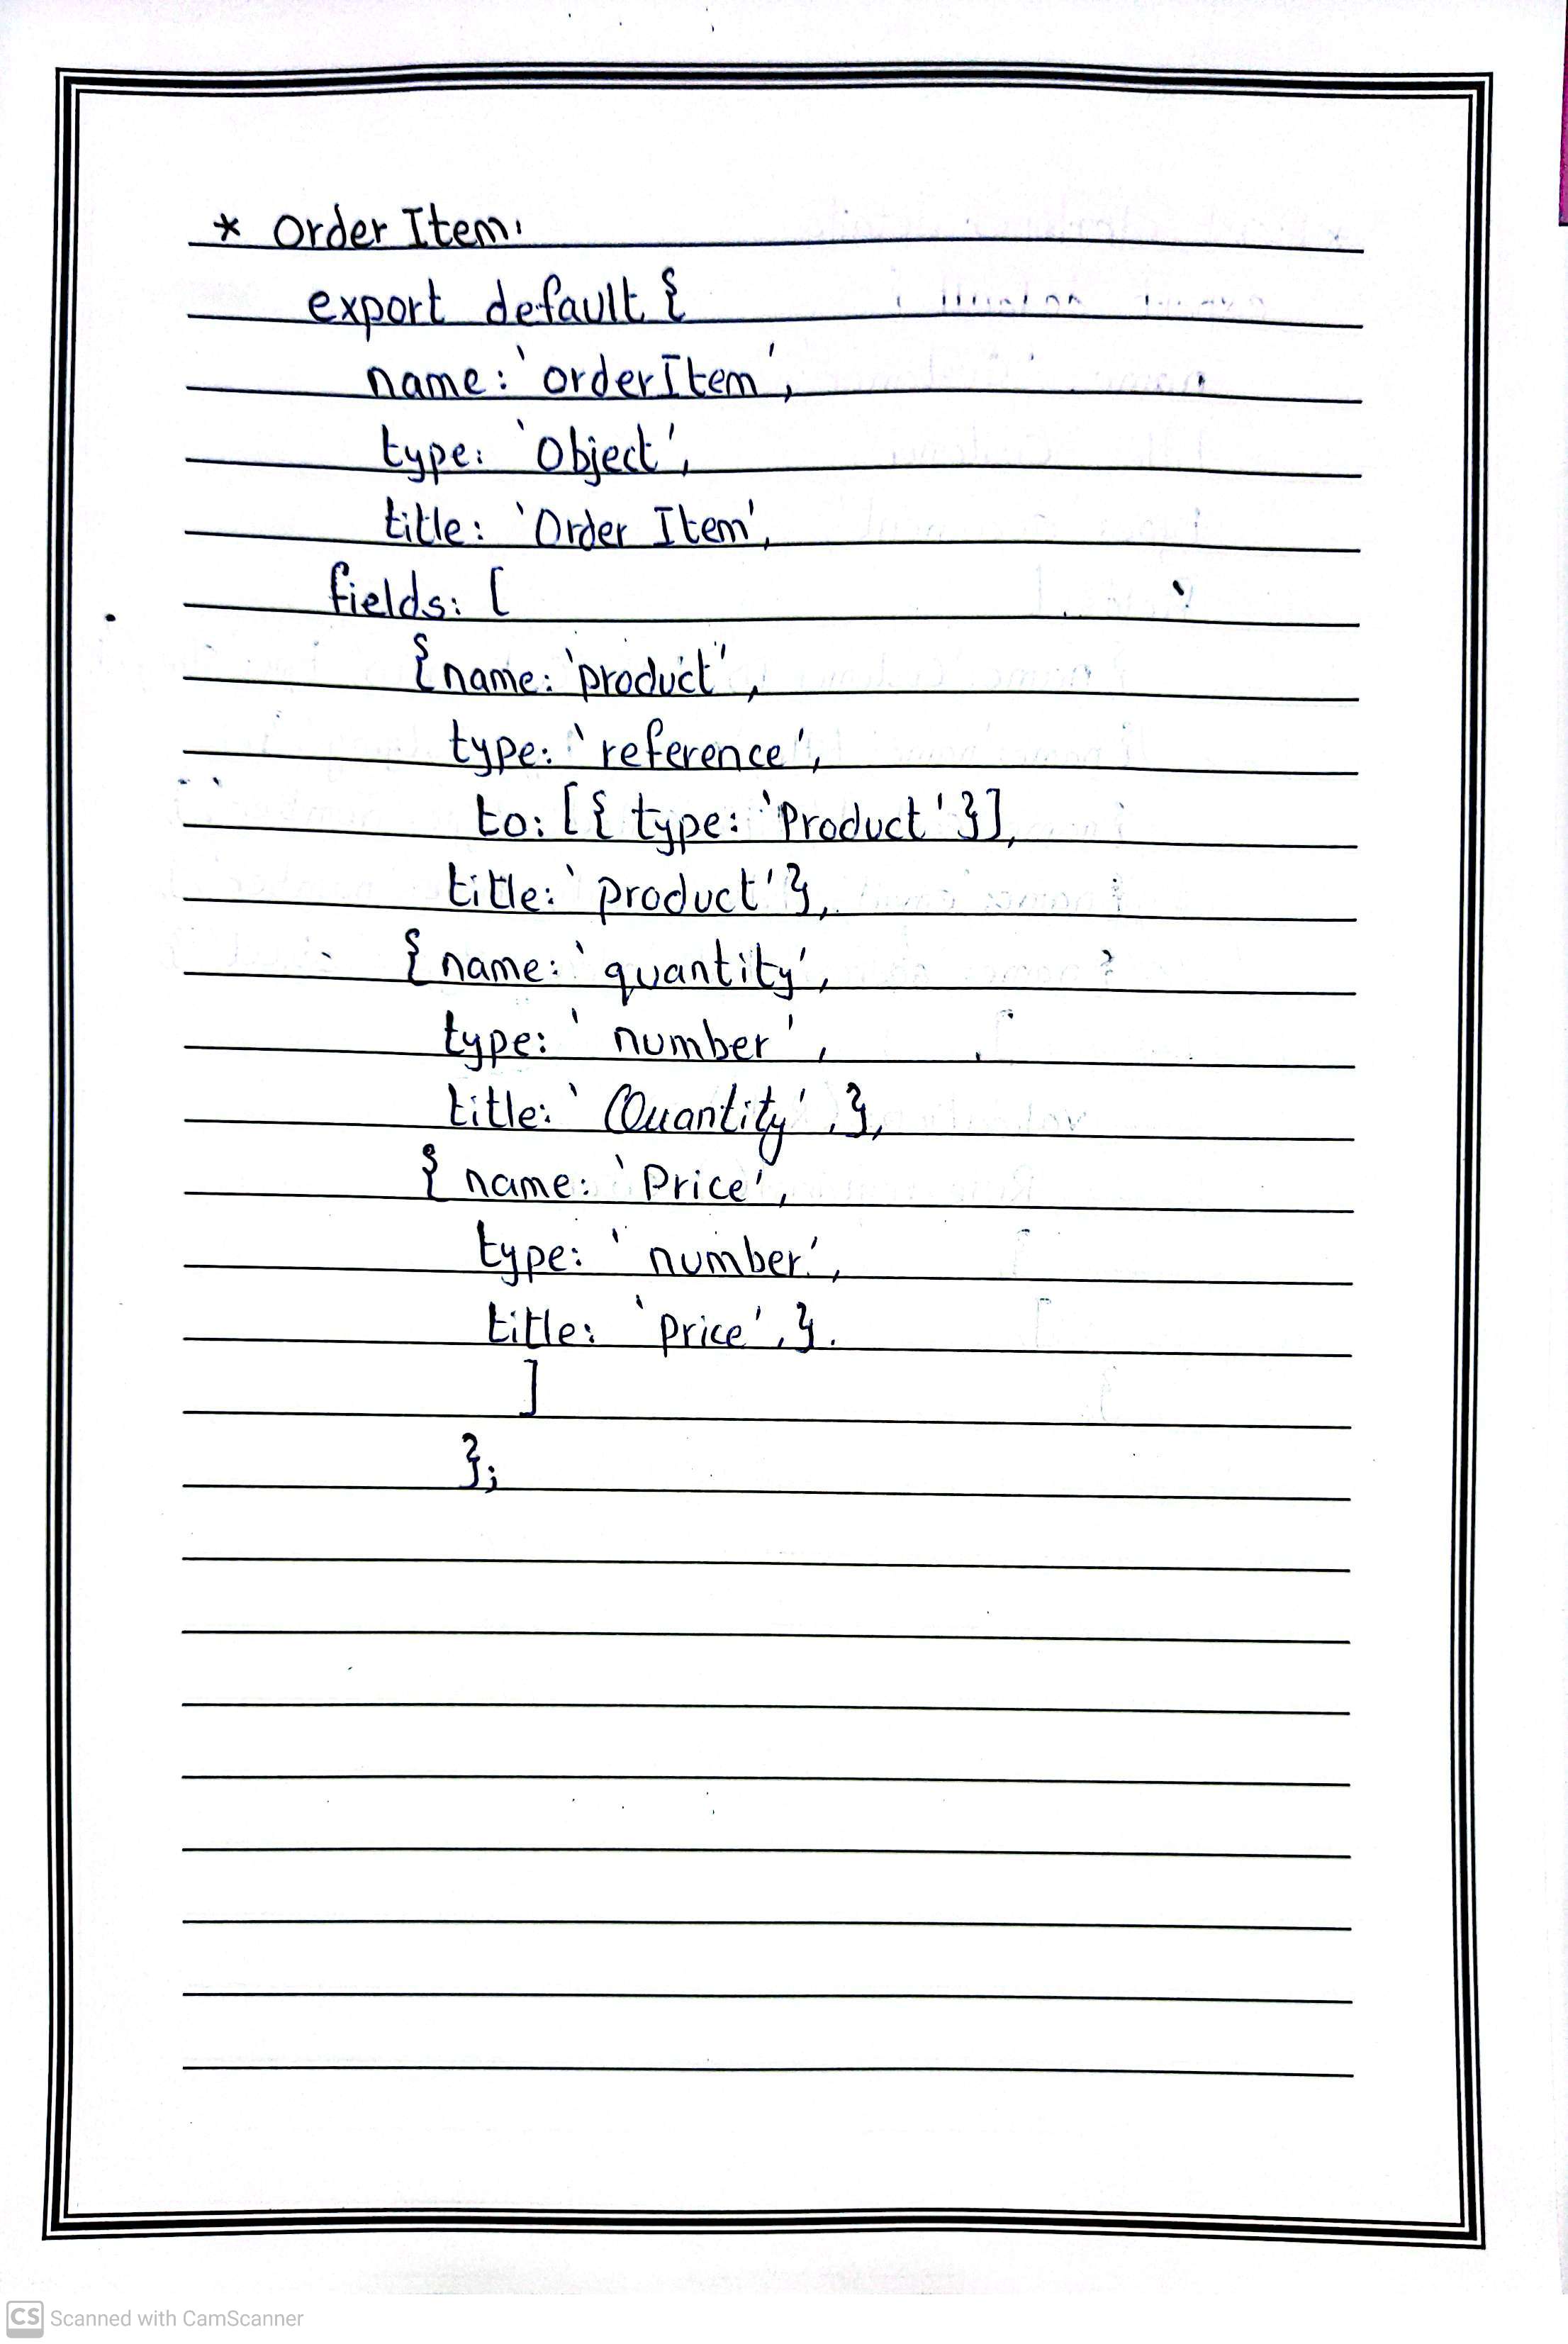 * Order Item:
export default {
name: 'orderItem',
type: 'Object',
title: 'Order Item',
fields: [
{ name: 'product',
type: 'reference',
to: [{ type: 'Product' }],
title: 'product' },
{ name: 'quantity',
type: 'number',
title: 'Quantity', },
{ name: 'Price',
type: 'number',
title: 'Price', }.
]
};
CS Scanned with CamScanner